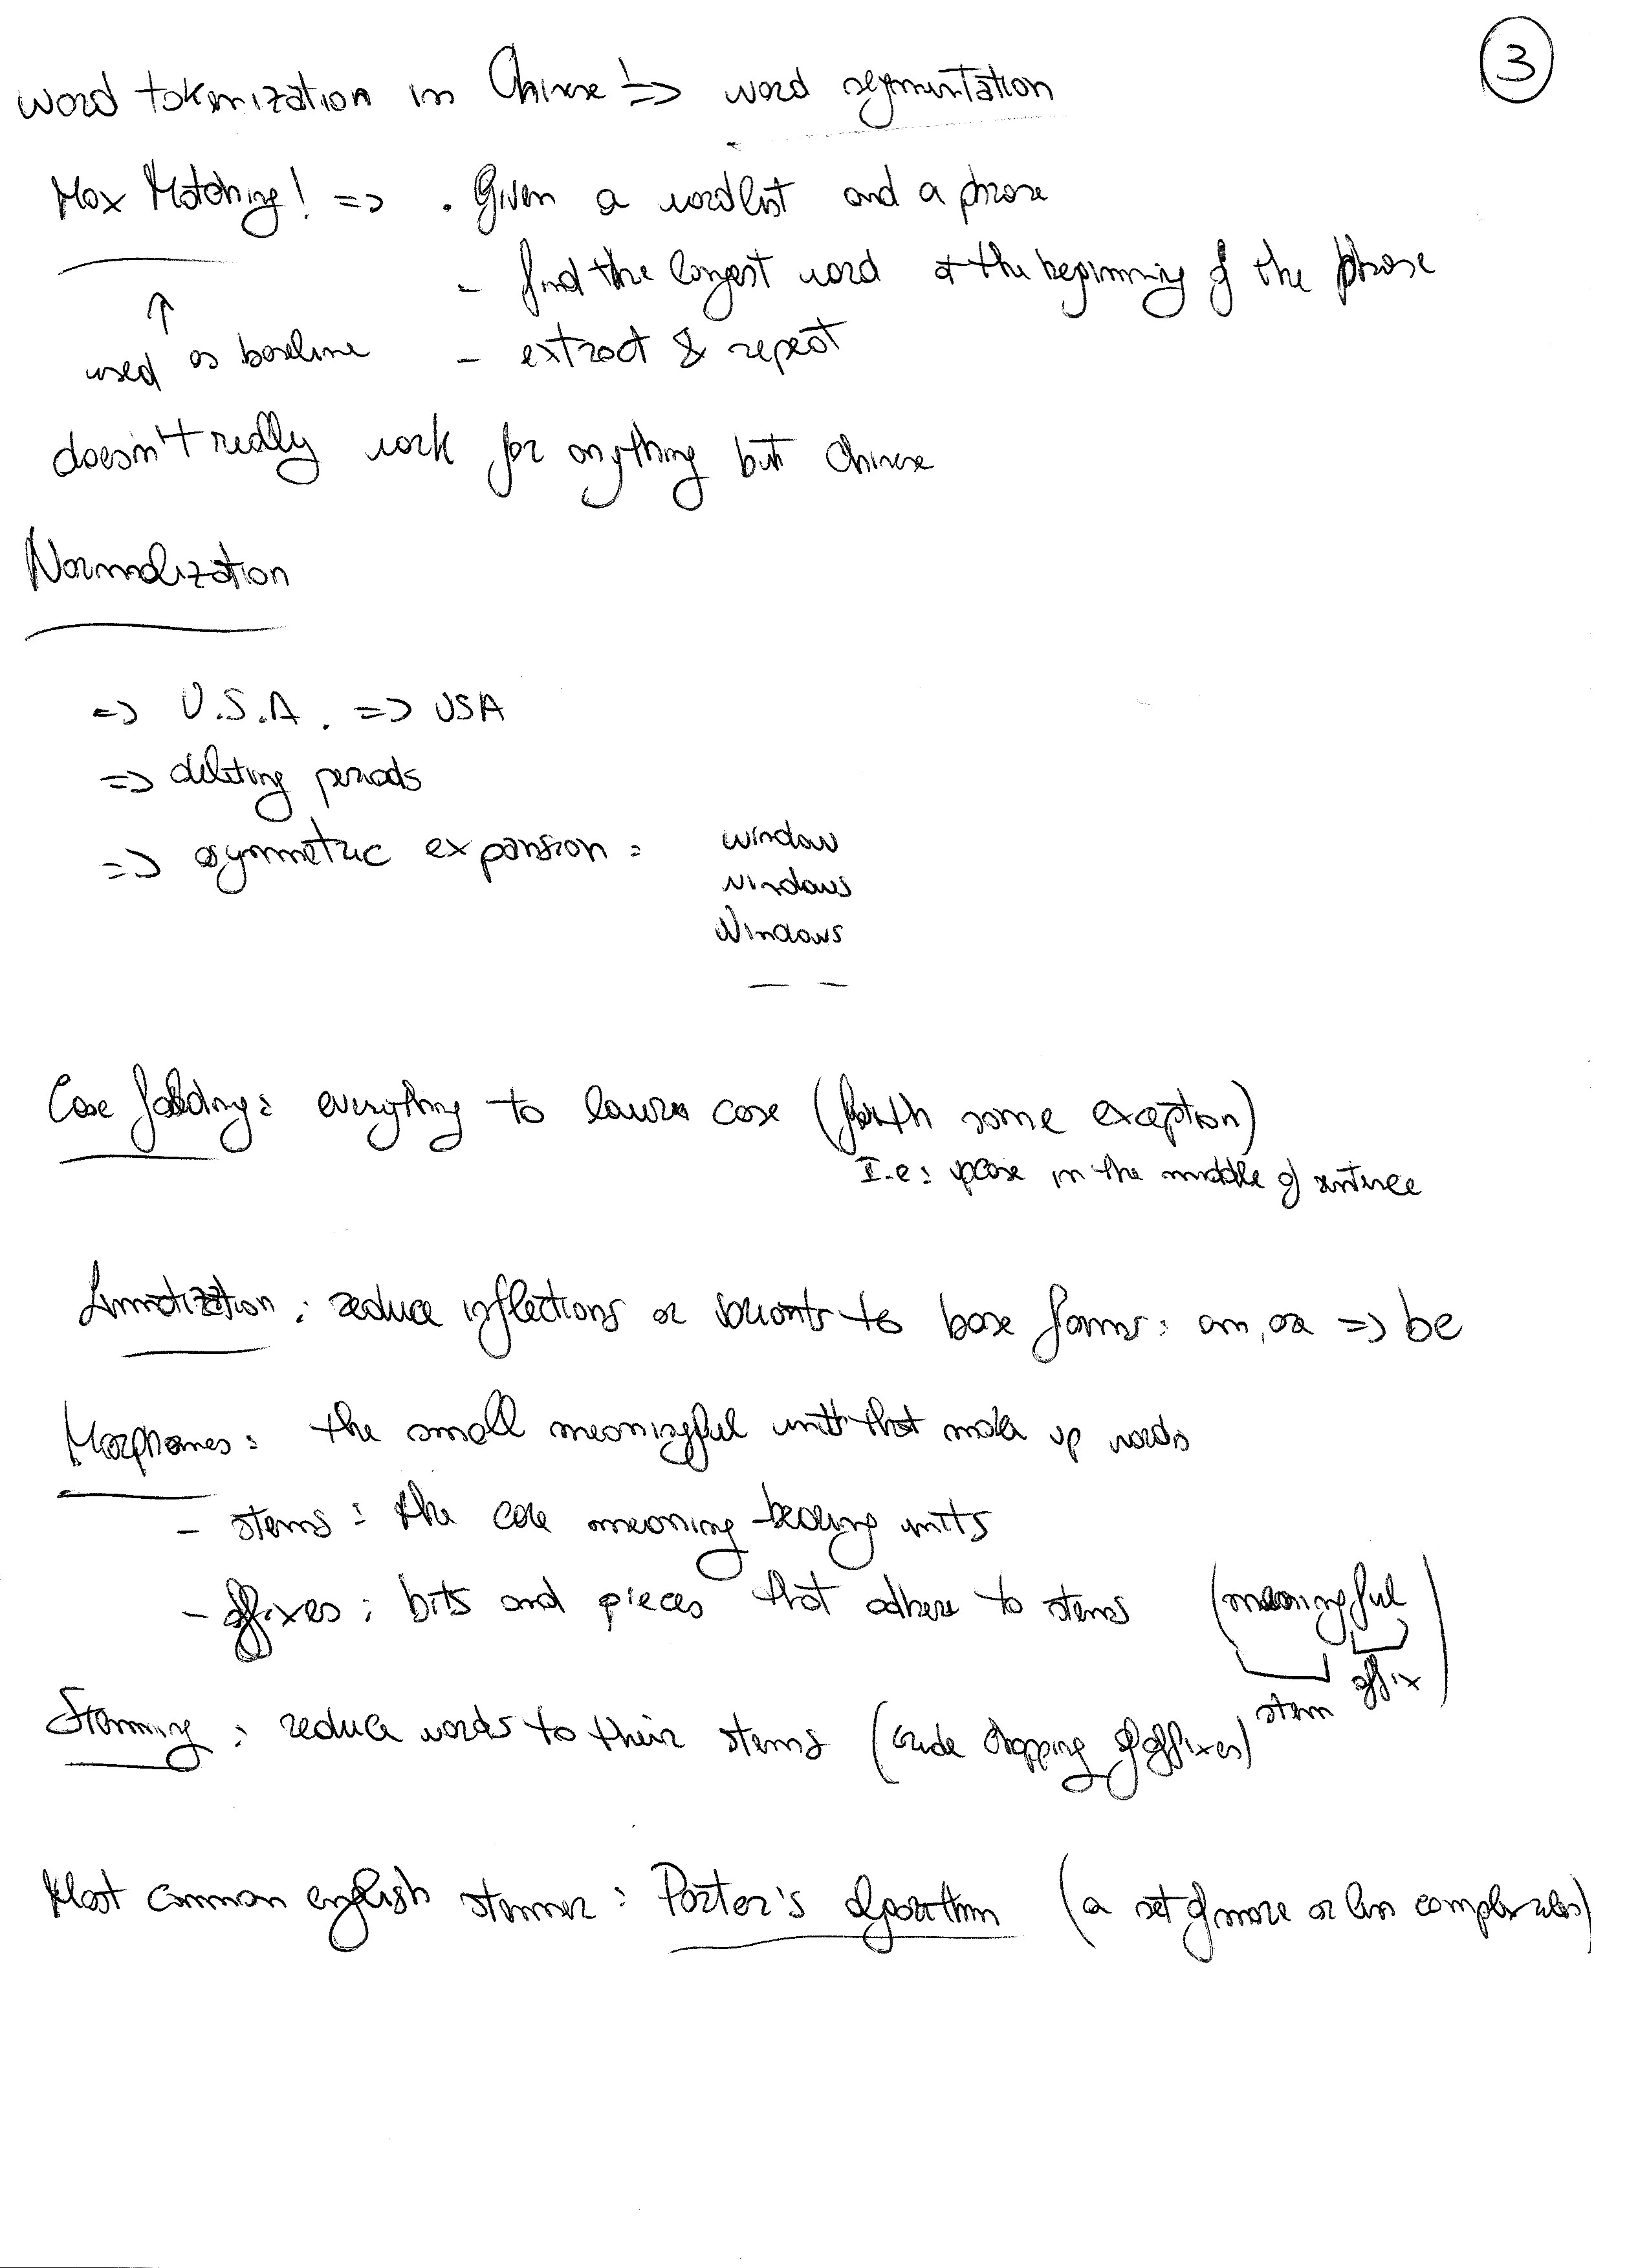 3
word tokenization in Chinese! => word segmentation
Max Matching! => . Given a wordlist and a phrase
- find the longest word at the beginning of the phrase
↑
used as baseline - extract & repeat
doesn't really work for anything but Chinese
Normalization
=> U.S.A. => USA
=> deleting periods
=> asymmetric expansion : window
windows
Windows
— —
Case folding: everything to lower case ( with some exception)
I.e: upcase in the middle of sentence
Lemmatization : reduce inflections or variants to base forms: am, are => be
Morphemes: the small meaningful units that make up words
- stems : the core meaning-bearing units
- affixes : bits and pieces that adhere to stems (meaningful)
stem affix
Stemming : reduce words to their stems (crude chopping of affixes)
Most common english stemmer : Porter's algorithm (a set of more or less complex rules)